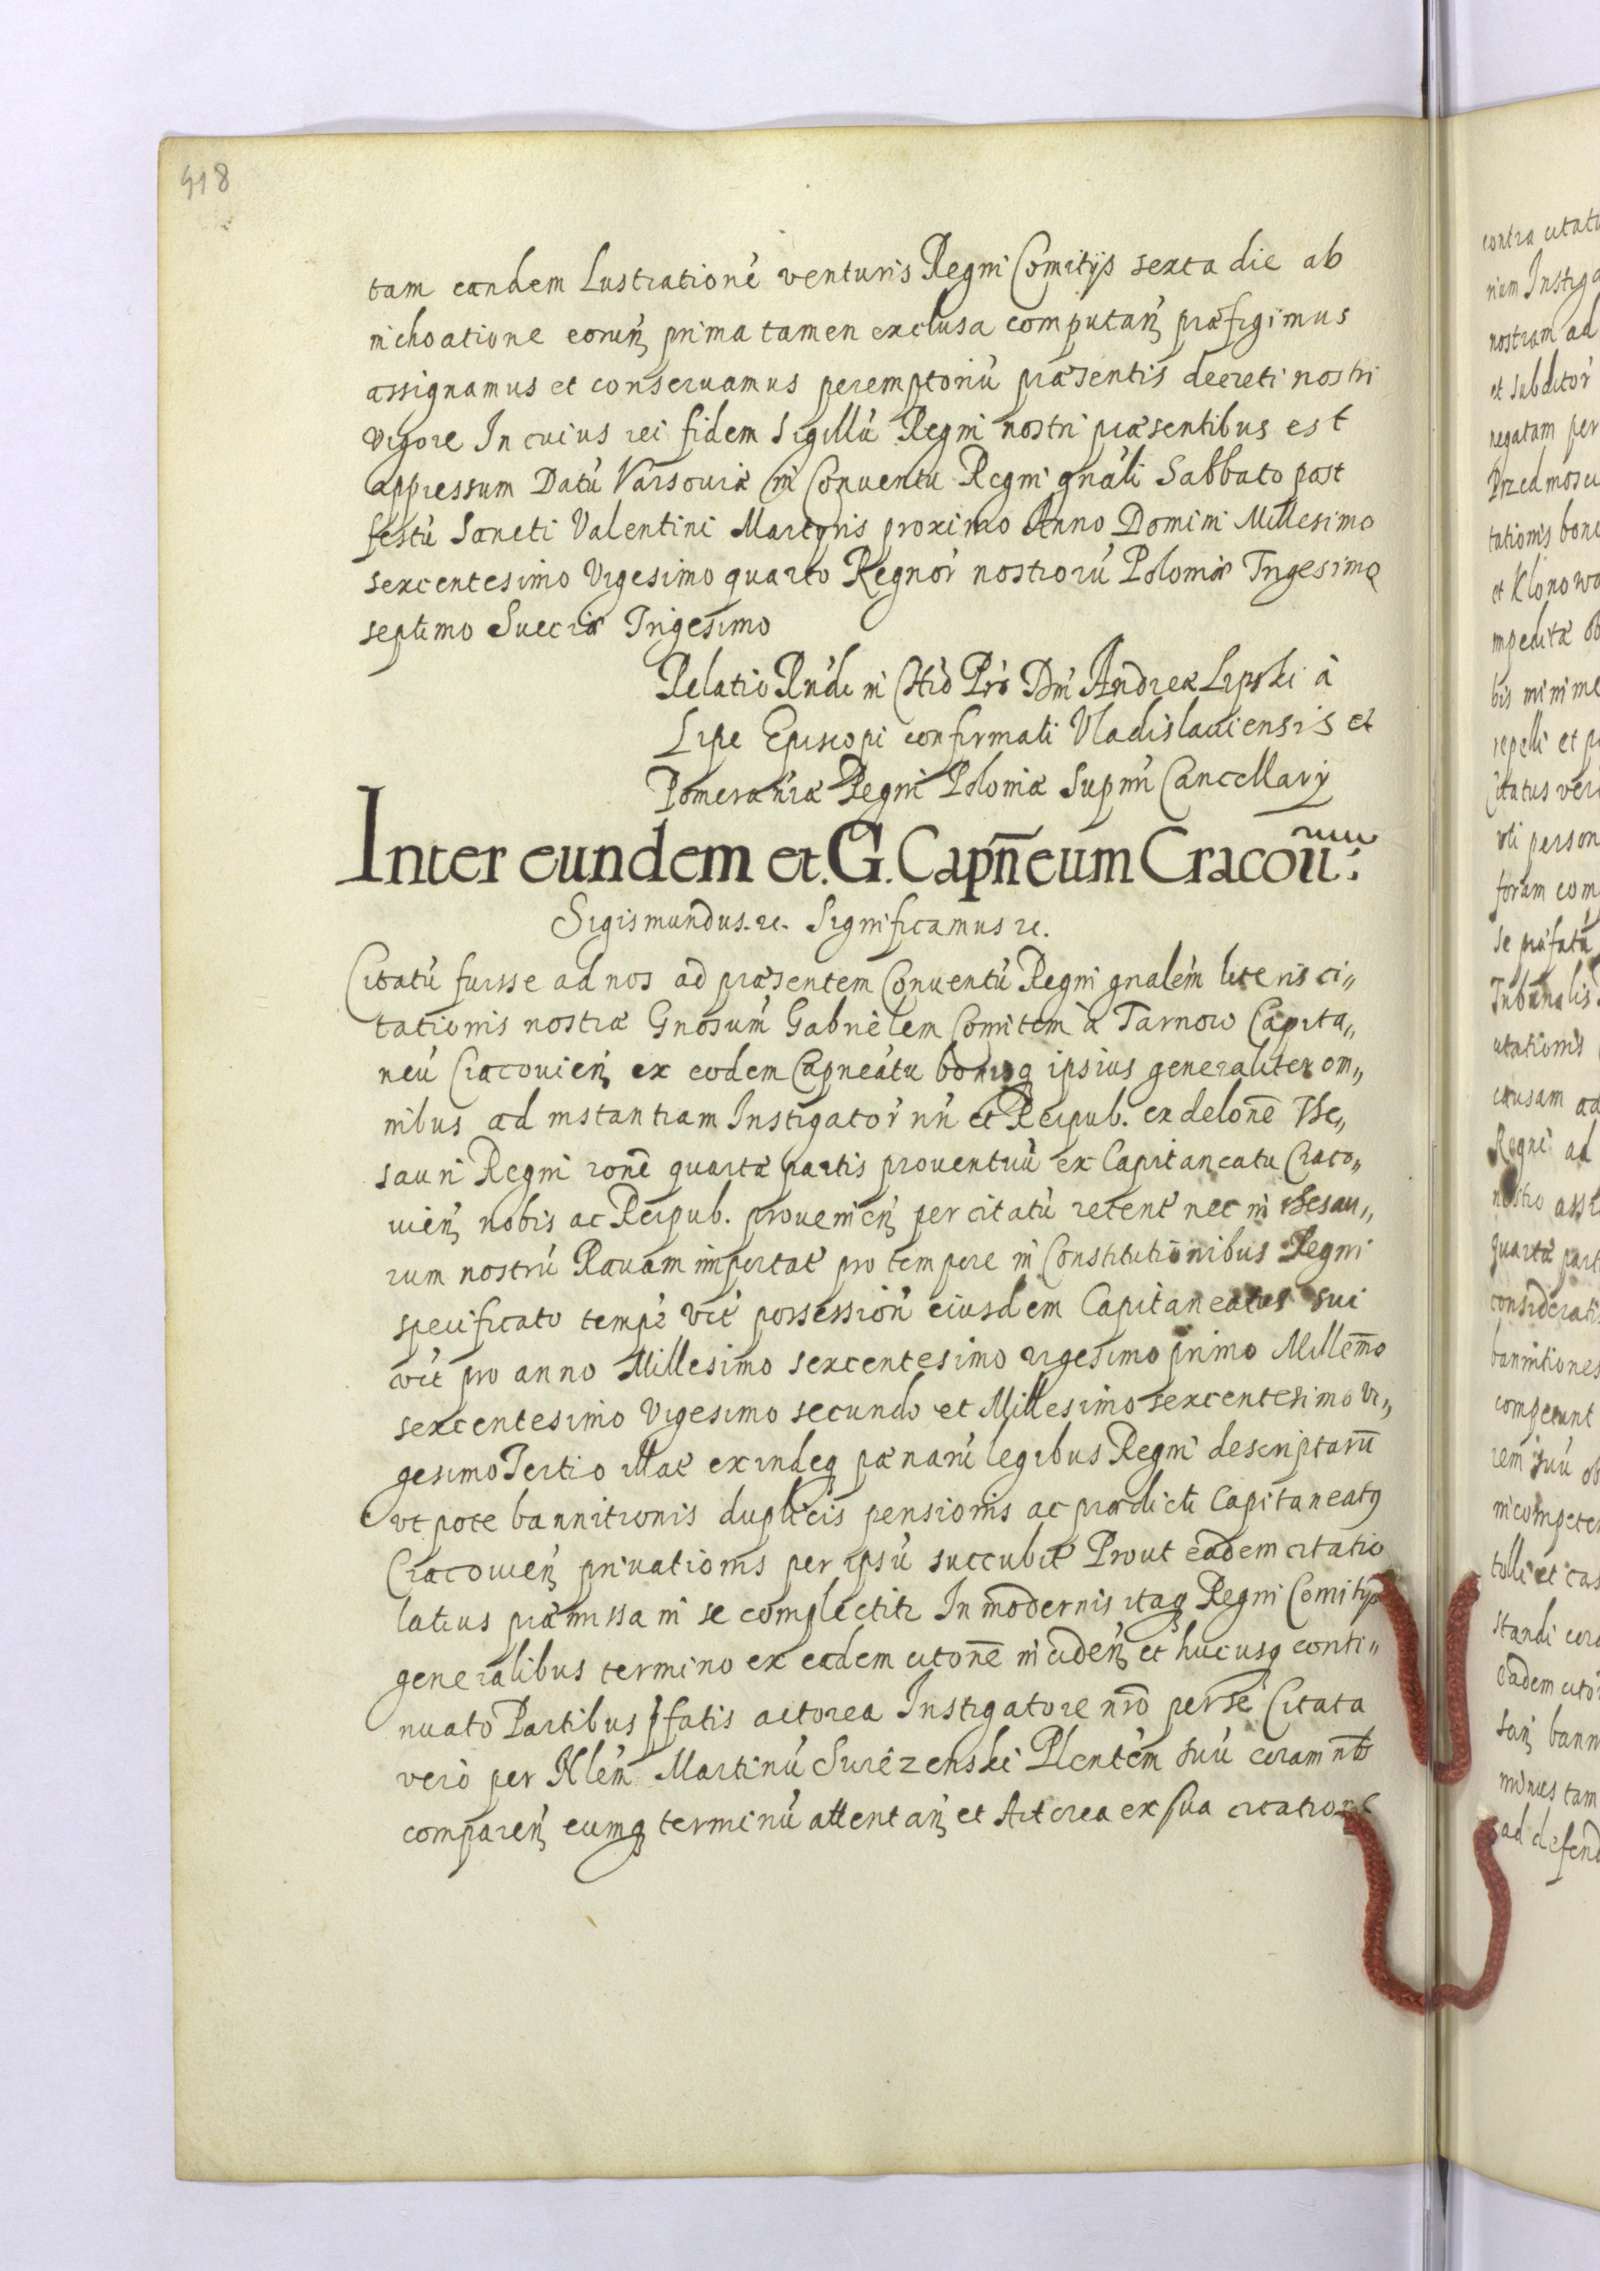 418
tam eandem Lustrationē venturis Regni Comitijs sexta die ab
inchoatione eorun̄ prima tamen exclusa computan̄ præfigimus
assignamus et conseruamus peremptoriū præsentis decreti nostri
vigore In cuius rei fidem Sigillū Regni nostri præsentibus est
appressum Datū Varsouiæ in Conuentu Regni gnāli Sabbato post
festū Sancti Valentini Martyris proximo Anno Domini Millesimo
sexcentesimo Vigesimo quarto Regnor̄ nostrorū Poloniæ Trigesimo
septimo Sueciæ Trigesimo
Relatio Rndi in Chrō Pris Dni Andreæ Lipski à
Lipe Episcopi confirmati Vladislauiensis et
Pomeraniæ Regni Poloniæ Supmi Cancellarij
Inter eundem et. G. Capn̄eum Cracouī.
Sigismundus. rc. Significamus rc.
Citatū fuisse ad nos ad præsentem Conuentū Regni gnalēm literis ci„
tationis nostræ Gnosum̄ Gabriēlem Comitem à Tarnow Capita„
neū Cracouien̄ ex eodem Capneātu bonisq ipsius generaliter om„
nibus ad instantiam Instigator̄ nri et Reipub. ex delonē The„
sauri Regni ronē quartæ partis prouentuū ex Capitaneatu Craco„
uien̄ nobis ac Reipub. prouenien̄ per citatū retent̄ nec in thesau„
rum nostrū Rauam importat̄ pro tempore in Constitutionibus Regni
specificato tempē vtt̄ possession̄ eiusdem Capitaneatus sui
vtt̄ pro anno Millesimo sexcentesimo vigesimo primo Millemō
sexcentesimo Vigesimo secundo et Millesimo sexcentesimo Vi„
gesimo Tertio illat̄ exindeq pænarū legibus Regni descriptarū
vt pote bannitionis duplicis pensionis ac prædicti Capitaneatq
Cracouien̄ priuationis per ipsū succubit̄ Prout eādem citatio
latius præmissa in se complectitr In modernis itaq Regni Comitijs
generalibus termino ex eadem citonē inciden̄ et hucusq conti„
nuato Partibus pfatis actorea Instigatore nrō per se Citata
verò per Nlem̄ Martinū Surēzenski Plentēm suū coram nb̄
comparen̄ eumq terminū attentan̄ et Actorea ex sua citatione
contra citatu
riam Instiga
nostram ad
et subditor̄
negatam per
Przedmoscu
tationis bono
et Klonowa
impedita ob
bis minime
repelli et p
Citatus vero
vti person
forum com
se præfatū
Tribunalis
citationis
causam ad
Regni ad
nostro ass
quartæ part
considerati
bannitiones
competunt
rem suū ob
incompeten
tolli et cas
standi cora
eadem citon
san̄ bann
minus tam
ad defend